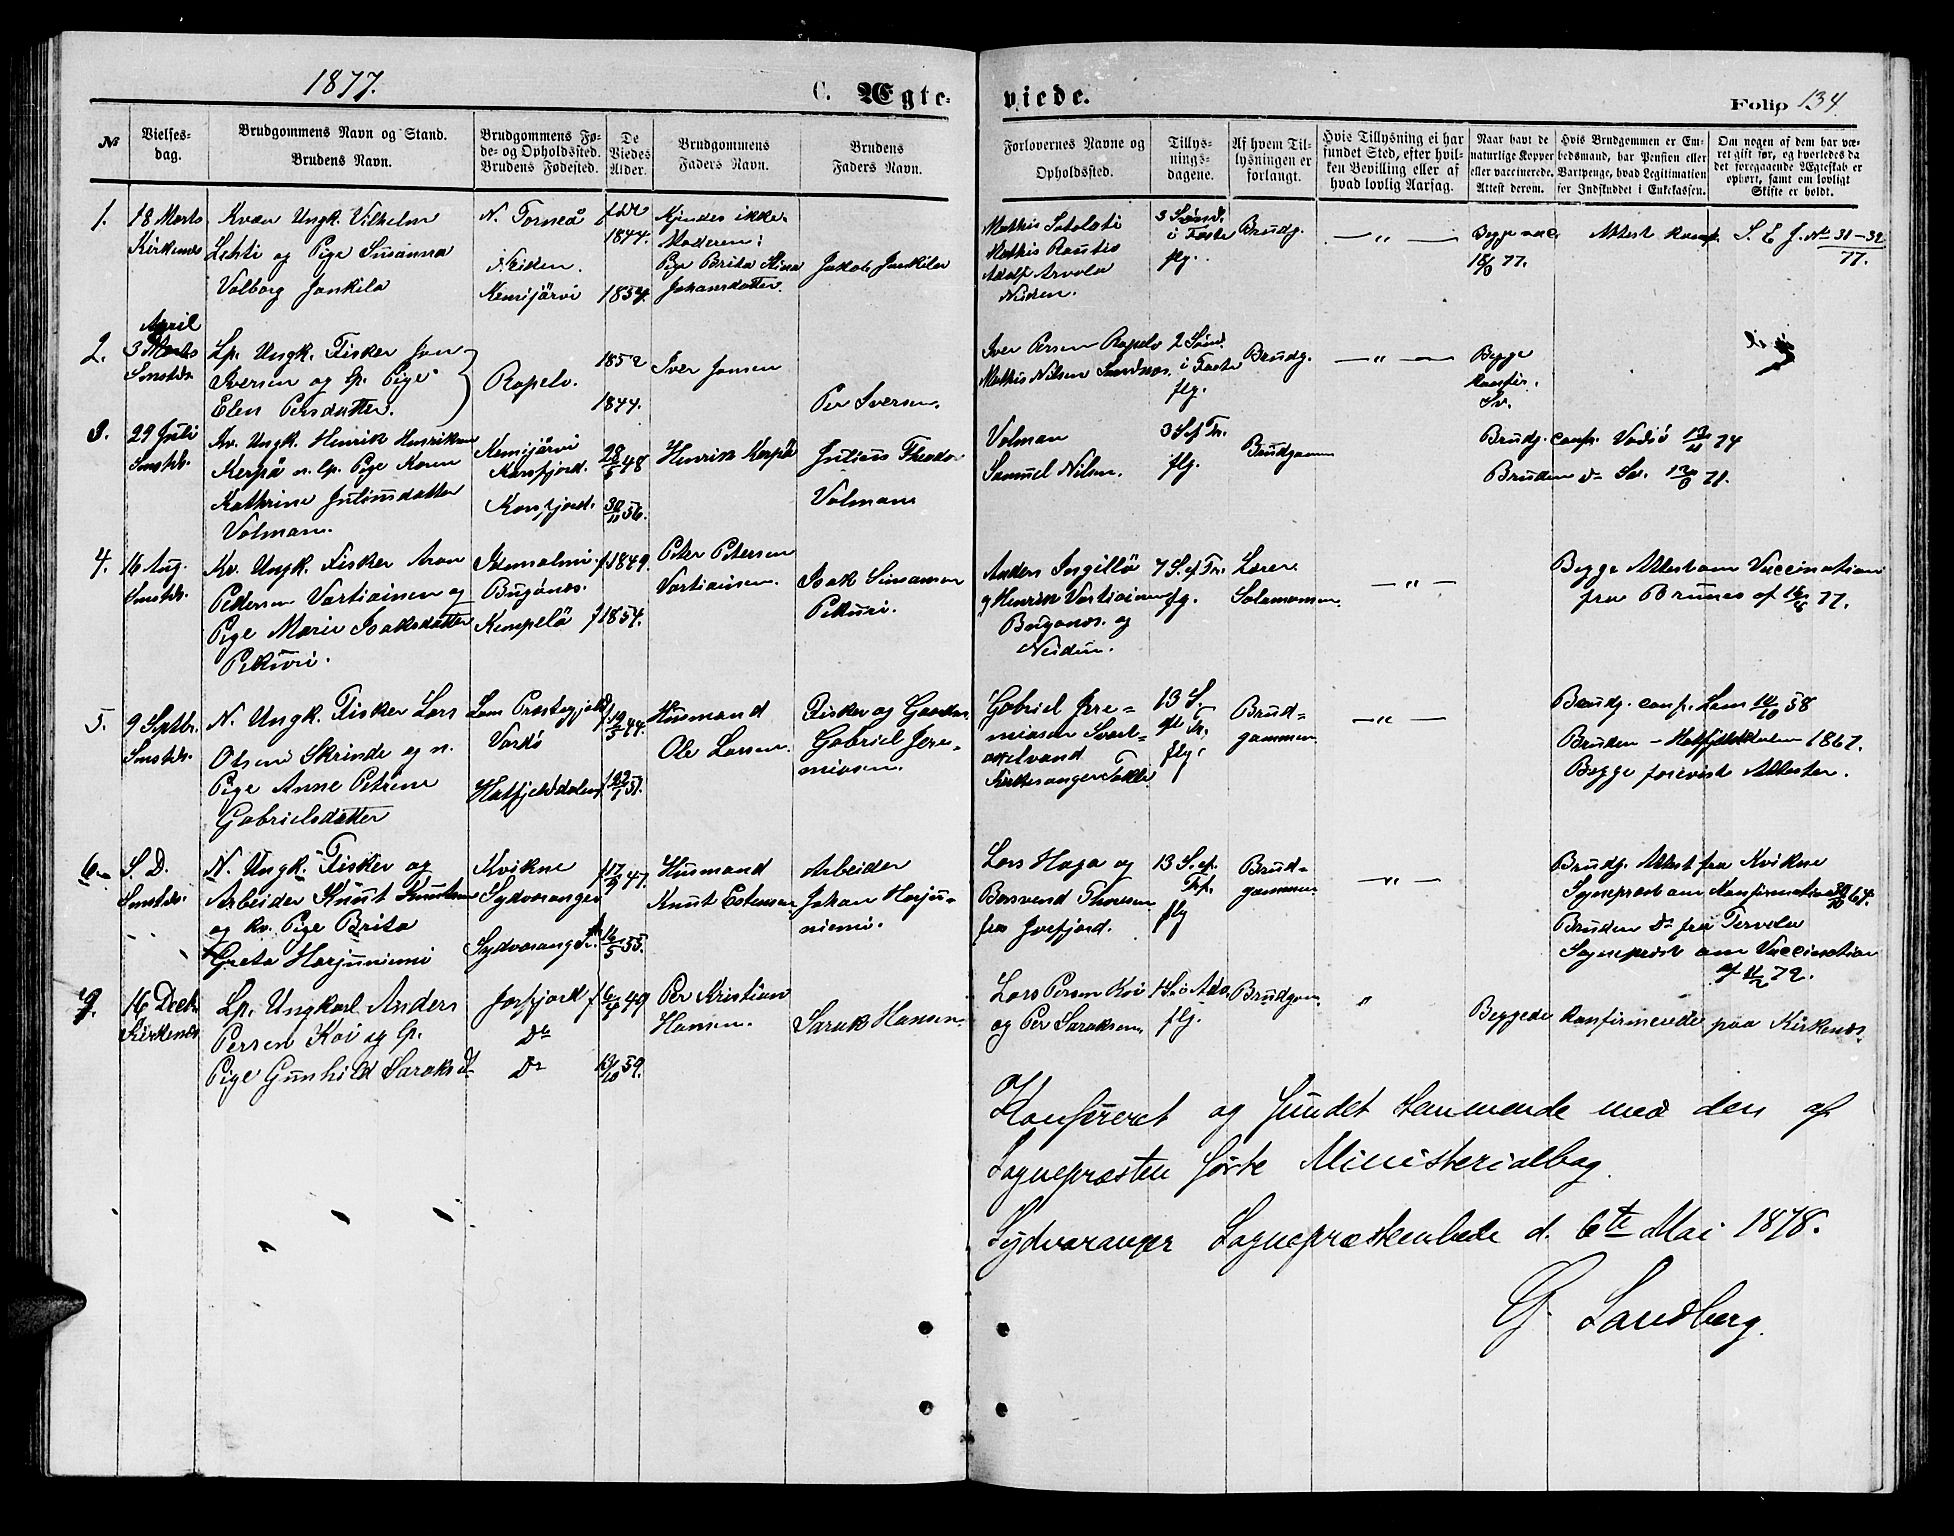 1877.
C. Ægte-
viede.
Folio 134.
№
Vielses-
dag.
Brudgommens Navn og Stand.
Brudens Navn.
Brudgommens Fø-
de- og Opholdssted.
Brudens Fødested.
De
Viedes
Alder.
Brudgommens
Faders Navn.
Brudens
Faders Navn.
Forlovernes Navne og
Opholdssted.
Tillys-
nings-
dagene.
Af hvem Til-
lysningen er
forlangt.
Hvis Tillysning ei har
fundet Sted, efter hvil-
ken Bevilling eller af
hvad lovlig Aarsag.
Naar havt de
naturlige Kopper
eller vaccinerede.
Attest derom.
Hvis Brudgommen er Em-
bedsmand, har Pension eller
Vartpenge, hvad Legitimation
for Indskuddet i Enkekassen.
Om nogen af dem har væ-
ret gift før, og hvorledes da
det foregaaende Ægteskab er
ophørt, samt om lovligt
Skifte er holdt.
1.
18 Marts
Kirkenæs
Kvæn Ungk. Vilhelm
Lehti og Pige Susanna
Valborg Jankila
N. Torneå
Neiden.
Kemijärvi
1844.
1854.
Kjendes ikke.
Moderen:
Pige Brita Stina
Johansdatter.
Jakob Jankila
Mathis
Mathis Rautio
Adolf Arvola
Neiden.
3 Sønd.
i Faste
flg.
Brudg.
— " —
Begge vac.
77.
Attest
S. E J. № 31-32
77.
2.
April
3 Marts
Smstds.
Lp. Ungk. Fisker Jon
Iversen og Lp. Pige
Elen Persdatter.
Ropelv.
1852
1844.
Iver Jonsen
Per Iversen.
Iver Persen Ropelv
Mathis Nilsen Sandnes.
2 Sønd.
i Faste
flg.
Brudg.
— " —
Begge
Konfir.
Sv.
3.
29 Juli
Smstds.
Kv. Ungk. Henrik Henriksen
Kerpä n. Lp. Pige Karen
Kathrine Juliusdatter
Volmann.
Kemijärvi
Korsfjord.
Korsfjord.
28/5 48
30/11 56.
Henrik Kerpä
Julius Theodor
Volmann
Volman
Samuel Nilsen.
3 S ef Tr.
flg.
Brudgommen
Brudg. conf. Vadsö 74
Bruden do Sv. 71.
4.
16 Aug.
Smstds.
Kv. Ungk. Fisker Aron
Pettersen Vartiainen og
Pige Marie Isaksdatter
Pekuri.
Bugönæs.
Kempelö
f 1849.
f 1854.
Peter Petersen
Vartiainen.
Isak Simonsen
Pekuri.
Anders
og Henrik Vartiainen
Bugönæs. og
Neiden.
7 S. ef Tr.
flg.
Lærer
Salamonsen.
— " —
Begge Attest om Vaccination
fra Brunes af 77.
5.
9 Septbr.
Smstds.
N. Ungk. Fisker Lars
Olsen Skrinde og n.
Pige Anne Petrine
Gabrielsdatter
Lom Præstegjeld
Vardö
Hatfjelddalen
f 19/5 44.
f 22/1 51.
Husmand
Ole Larsen.
Fisker og Gaardm.
Gabriel Jere-
miasen.
Gabriel Jere-
miasen Svart-
axelvand
13 S.
ef Tr.
flg.
Brud-
gommen
— " —
Brudg. conf. Lom 58
Bruden — Hatfjelddalen 1867.
Begge forevist Attester.
6.
S. D.
Smstds.
N. Ungk. Fisker og
Arbeider Knut Knutsen
og kv. Pige Brita
Greta Harjuniemi
Kvikne
Sydvaranger
Sydvaranger
f 17/9 47.
16/5 55.
Husmand
Knut Estensen
Arbeider
Johan Harju-
niemi.
Lars Haga og
Thoresen
fra Jorfjord.
13 S. ef.
Tr.
flg
Brud-
gommen
— " —
Brudg. Attest fra Kvikne
Sognepræst om Konfirmation 64.
Bruden Do fra Tervola
Sognepræst om Vaccination
af 11/2 72.
7.
16 Decbr.
Kirkenæs
Lp. Ungkarl Anders
Persen Koi og Lp.
Pige Gunhild Saraks D.
Jorfjord
Do
Do
49
59.
Per Kristian
Hansen.
Sarak Hansen.
Lars Persen Koi
og Per Saraksen.
1 S. i Adv.
flg.
Brudgom.
"
Beggede Konfirmerede paa Kirkenæs
Konfereret og fundet stemmende med den af
Sognepræsten førte Ministerialbog.
Sydvaranger Sognepræstembede d. 6te Mai 1878.
G. Sandberg.